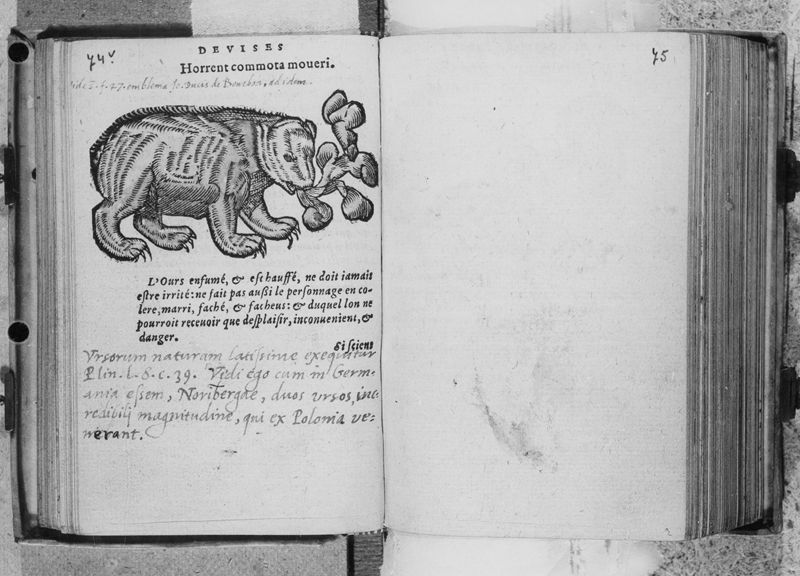 74v
DEVISES
Horrent commota moueri.
f. 27. emblema Jo. ad idem.
L'Ours enfumé, & eschauffé, ne doit iamais
estre irrité: ne fait pas außi le personnage en co-
lere, marri, faché, & facheus: & duquel lon ne
pourroit receuoir que desplaisir, inconuenient, &
danger.
Si sciens
Vrsorum naturam latissime exequitur
Plin. l. 8. c. 39. Vidi ego cum in Germ-
ania essem, Noribergae, duos vrsos, inc-
redibilj magnitudine, qui ex Polonia ve-
nerant.
75